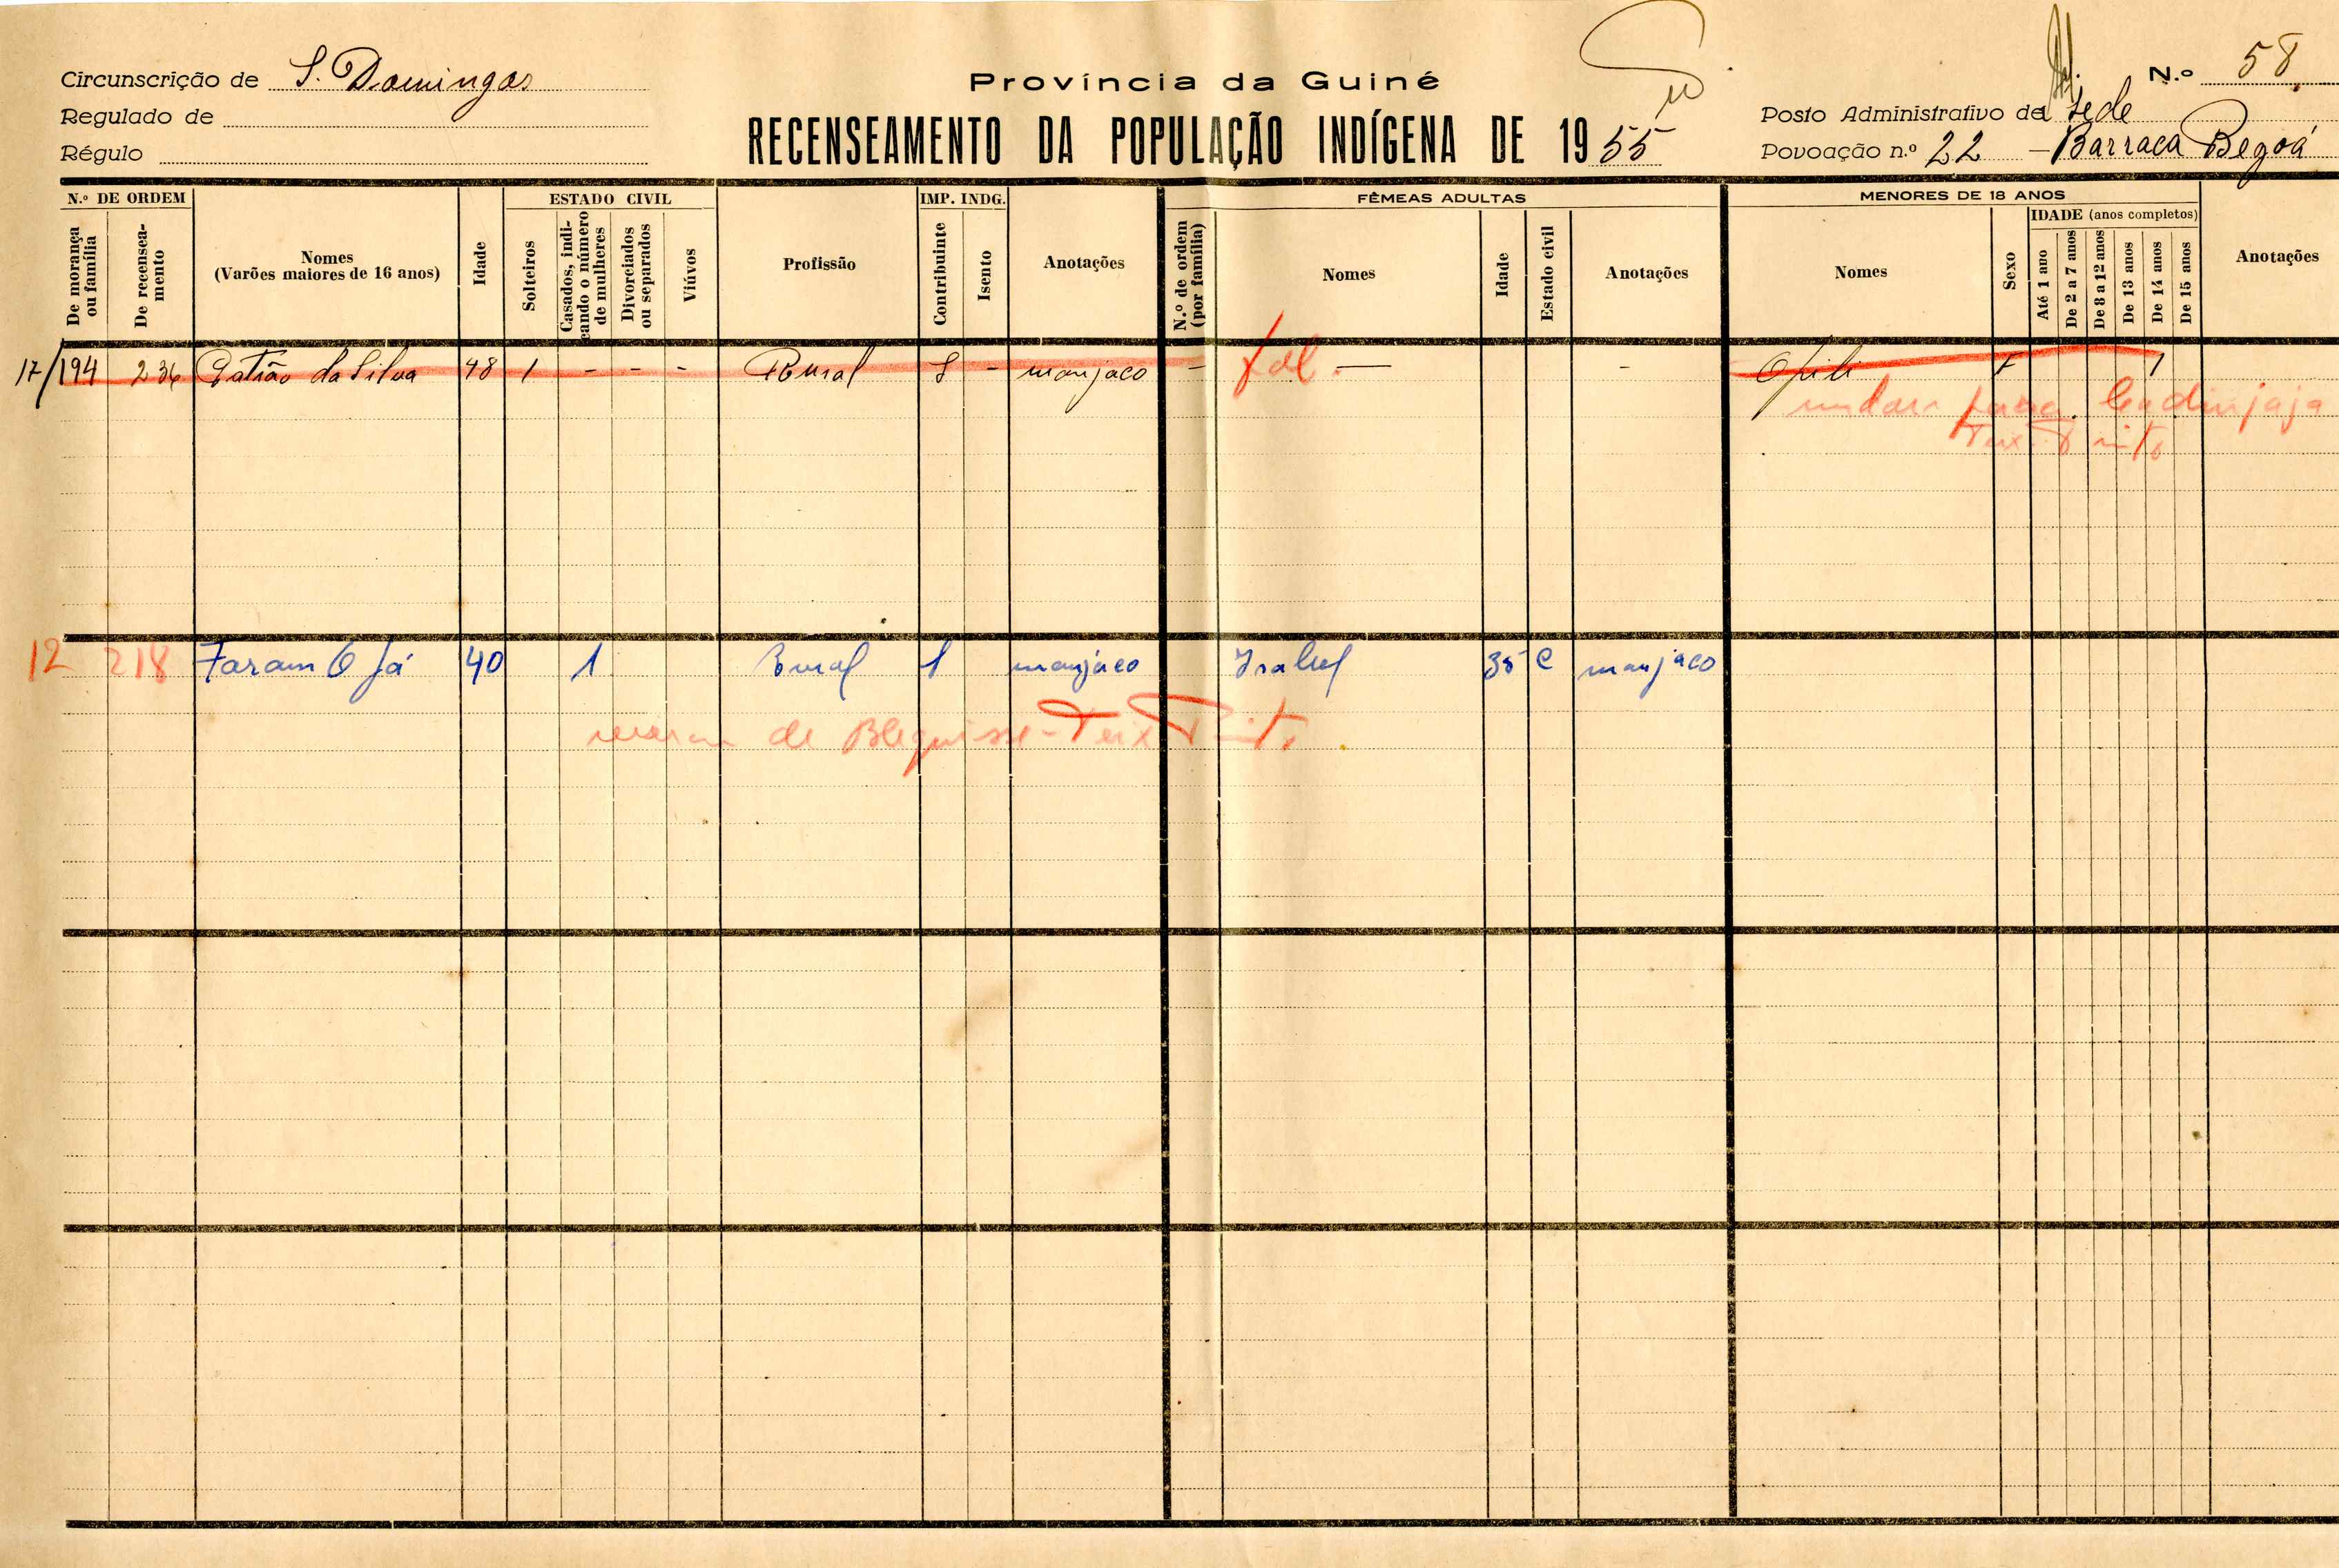 Circunscrição de S. Domingos
Regulado de
Régulo
Província da Guiné
RECENSEAMENTO DA POPULAÇÃO INDÍGENA DE 1955
N.º 58
Posto Administrativo de Sede
Povoação n.º 22 - Barraca Begoá
N.º DE ORDEM
De morança ou família
De recenseamento
Nomes
(Varões maiores de 16 anos)
Idade
ESTADO CIVIL
Solteiros
Casados, indicando o número de mulheres
Divorciados ou separados
Viúvos
Profissão
IMP. INDG.
Contribuinte
Isento
Anotações
FÊMEAS ADULTAS
N.º de ordem (por família)
Nomes
Idade
Estado civil
Anotações
MENORES DE 18 ANOS
Nomes
Sexo
IDADE (anos completos)
Até 1 ano
De 2 a 7 anos
De 8 a 12 anos
De 13 anos
De 14 anos
De 15 anos
Anotações
17/194 236 Patrão da Silva 48 1 - - - Rural 1 - manjaco - fal. — - F 1
para
12 218 40 1 Rural 1 manjaco Isabel 35 C manjaco
de Blequisse - Teix Pinto